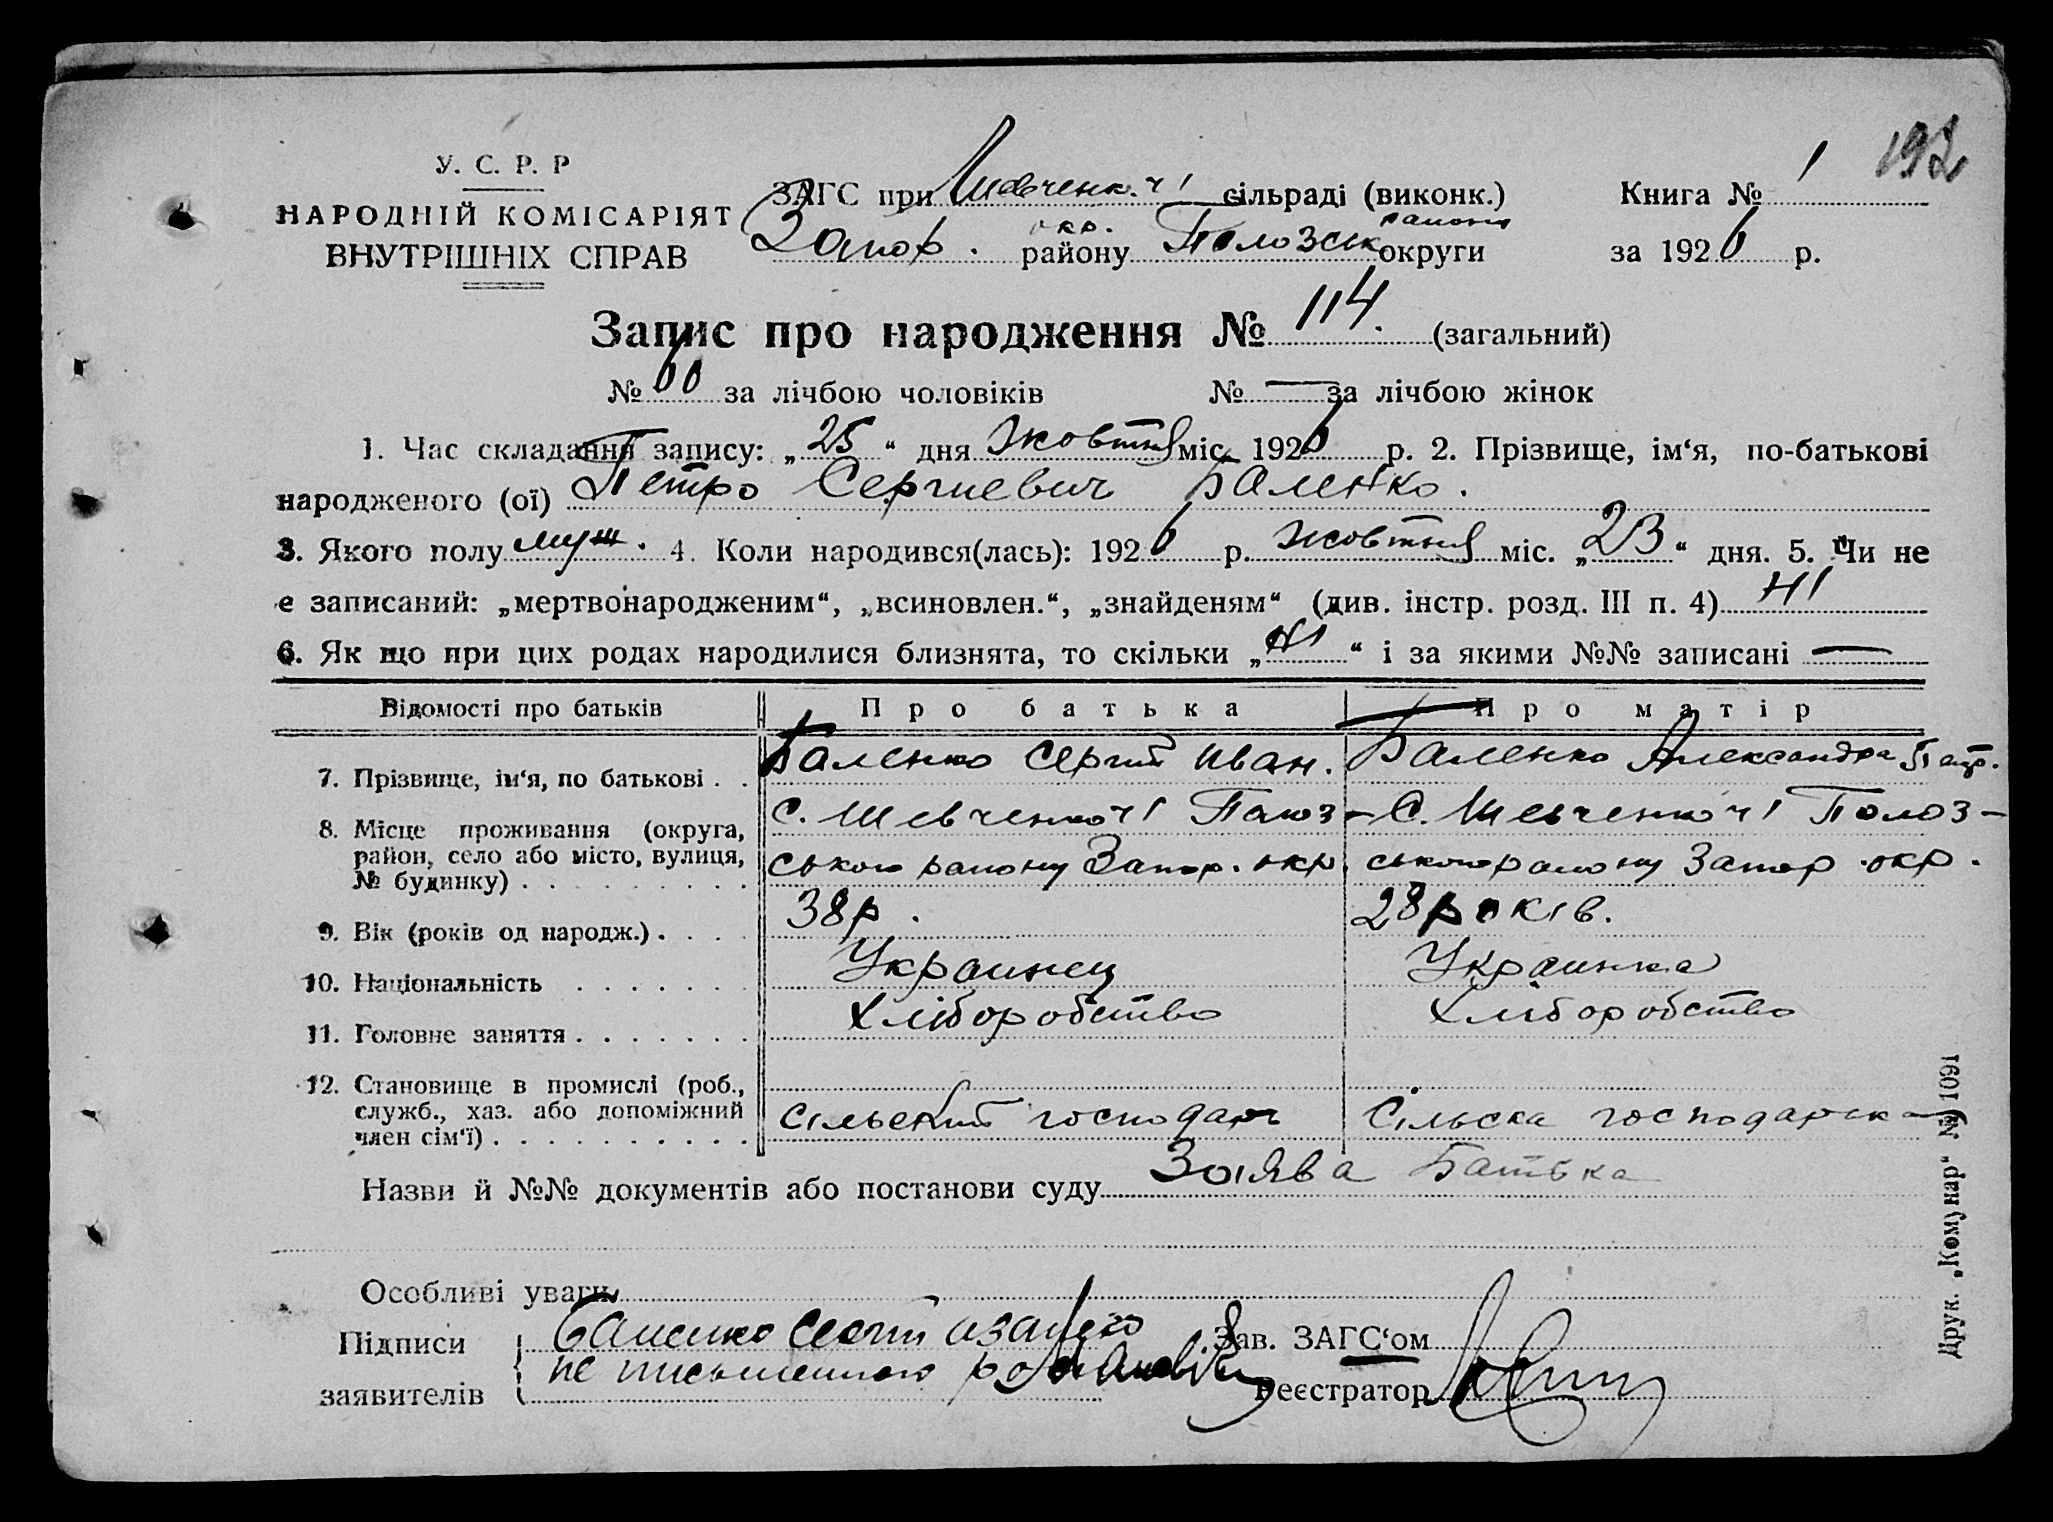 192
У. С. Р. Р
НАРОДНІЙ КОМІСАРІЯТ
ВНУТРІШНІХ СПРАВ
ЗАГС при Шевченк.чі сільраді (виконк.) Книга № 1
окр. района
Запор. району Полозськ округи за 1926 р.
Запис про народження № 114. (загальний)
№ 60 за лічбою чоловіків № — за лічбою жінок
1. Час складання запису: „25“ дня Жовтня міс. 1926 р. 2. Прізвище, ім‘я, по-батькові
народженого (ої) Петро Сергиевич Баленко.
3. Якого полу муж. 4. Коли народився(лась): 1926 р. Жовтня міс. „23“ дня. 5. Чи не
є записаний: „мертвонародженим“, „всиновлен.“, „знайденям“ (див. інстр. розд. III п. 4) Ні
6. Як що при цих родах народилися близнята, то скільки „Ні“ і за якими №№ записані —
Відомості про батьків Про батька Про матір
7. Прізвище, ім‘я, по батькові . . Баленко Сергий Иван. Баленко Александра Петр.
8. Місце проживання (округа, район, село або місто, вулиця, № будинку) . . . . . . . . .
С. Шевченкочі Полоз-
ського району Запор. окр.
С. Шевченкочі Полоз-
ського району Запор. окр.
9. Вік (років од народж.) . . . . 38 р. 28 років.
10. Національність . . . . . . . Украинец Украинка
11. Головне заняття . . . . . . . Хліборобство Хліборобство
12. Становище в промислі (роб., служб., хаз. або допоміжний член сім‘ї) . . . . . . . . . .
Сільский господарь Сільска господарска
Назви й №№ документів або постанови суду Заява Батька
Особливі уваги
Підписи заявителів
Баленко Сергій а за його
не письменного
Зав. ЗАГС‘ом
Реєстратор
Друк. „Комунар“ № 1091